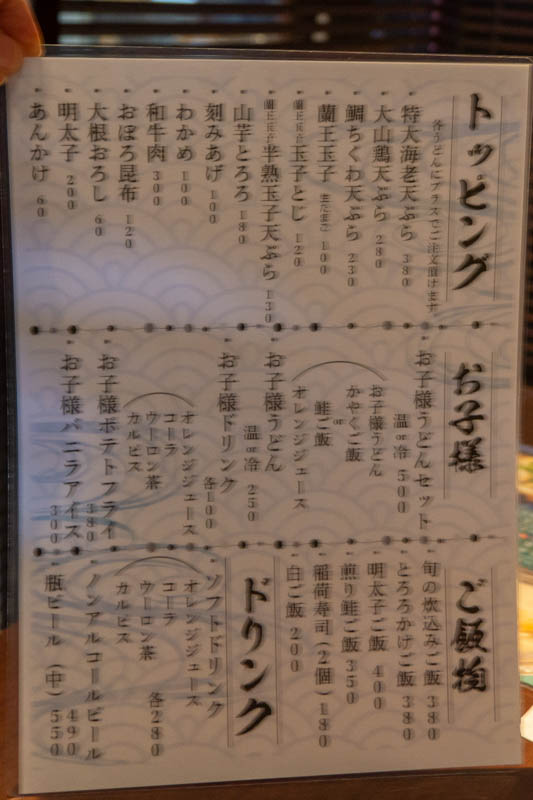 トッピング
各うどんにプラスでご注文頂けます
特大海老天ぷら 380
大山鶏天ぷら 280
鯛ちくわ天ぷら 230
蘭王玉子 生たまご 100
蘭王玉子 玉子とじ 120
蘭王玉子 半熟玉子天ぷら 130
山芋とろろ 180
刻みあげ 100
わかめ 100
和牛肉 300
おぼろ昆布 120
大根おろし 60
明太子 200
あんかけ 60
お子様
お子様うどんセット
温or冷 500
お子様うどん
かやくご飯
or
鮭ご飯
オレンジジュース
お子様うどん
温or冷 250
お子様ドリンク
各100
オレンジジュース
コーラ
ウーロン茶
カルピス
お子様ポテトフライ
380
お子様バニラアイス
300
ご飯物
旬の炊込みご飯 380
とろろかけご飯 380
明太子ご飯 400
煎り鮭ご飯 350
稲荷寿司(2個) 180
白ご飯 200
ドリンク
ソフトドリンク
オレンジジュース
コーラ
各280
ウーロン茶
カルピス
ノンアルコールビール
490
瓶ビール (中) 550